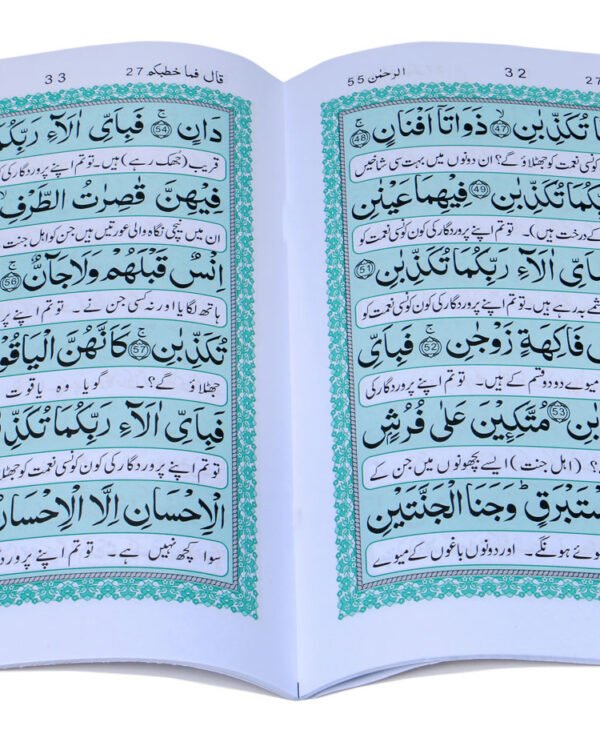 الرحمٰن 55
32
27
تُكَذِّبٰنِ ﴿47﴾ ذَوَاتَاۤ اَفْنَانٍ ﴿48﴾
کونسی نعمت کو جھٹلاؤ گے؟ ان دونوں میں بہت سی شاخیں
رَبِّكُمَا تُكَذِّبٰنِ ﴿49﴾ فِيْهِمَا عَيْنٰنِ
کے درخت ہیں)۔ تو تم اپنے پروردگار کی کون کونسی نعمت کو
اٰلَآءِ رَبِّكُمَا تُكَذِّبٰنِ ﴿51﴾
بہہ رہے ہیں۔ تو تم اپنے پروردگار کی کون کونسی نعمت کو
فَاكِهَةٍ زَوْجٰنِ ﴿52﴾ فَبِاَيِّ
میوے دو دو قسم کے ہیں۔ تو تم اپنے پروردگار کی
﴿53﴾ مُتَّكِـِٕيْنَ عَلٰى فُرُشٍ
(اہل جنت) ایسے بچھونوں میں جن کے
وَجَنَا الْجَنَّتَيْنِ
ہوئے ہونگے۔ اور دونوں باغوں کے میوے
قال فما خطبكم 27
33
دَانٍ ﴿54﴾ فَبِاَيِّ اٰلَآءِ رَبِّكُمَا
قریب (جھک رہے) ہیں۔ تو تم اپنے پروردگار کی
فِيْهِنَّ قٰصِرٰتُ الطَّرْفِ
ان میں نیچی نگاہ والی عورتیں ہیں جن کو اہل جنت
اِنْسٌ قَبْلَهُمْ وَلَا جَآنٌّ ﴿56﴾
ہاتھ لگایا اور نہ کسی جن نے۔ تو تم اپنے
تُكَذِّبٰنِ ﴿57﴾ كَاَنَّهُنَّ الْيَاقُوْ
جھٹلاؤ گے؟۔ گویا وہ یاقوت
فَبِاَيِّ اٰلَآءِ رَبِّكُمَا تُكَذِّ
تو تم اپنے پروردگار کی کون کونسی نعمت کو
الْاِحْسَانِ اِلَّا الْاِحْسَانُ
سوا کچھ نہیں ہے۔ تو تم اپنے